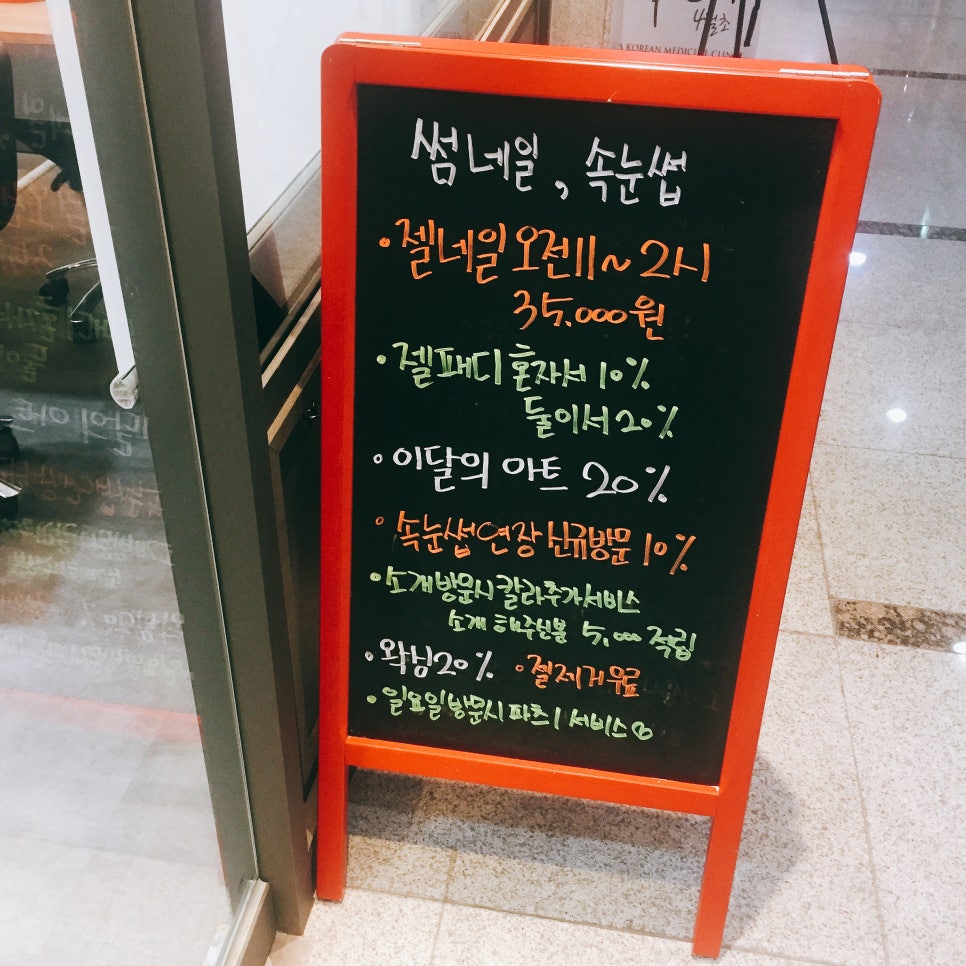 4월초
A KOREAN MEDICINE CLINIC
썸네일, 속눈썹
•젤네일 오전11~2시
35,000원
•젤패디 혼자서 10%
둘이서 20%
•이달의 아트 20%
•속눈썹연장 신규방문 10%
•소개방문시 칼라추가서비스
소개 해주신분 5,000 적립
•왁싱20% •젤제거무료
•일요일방문시 파츠1 서비스